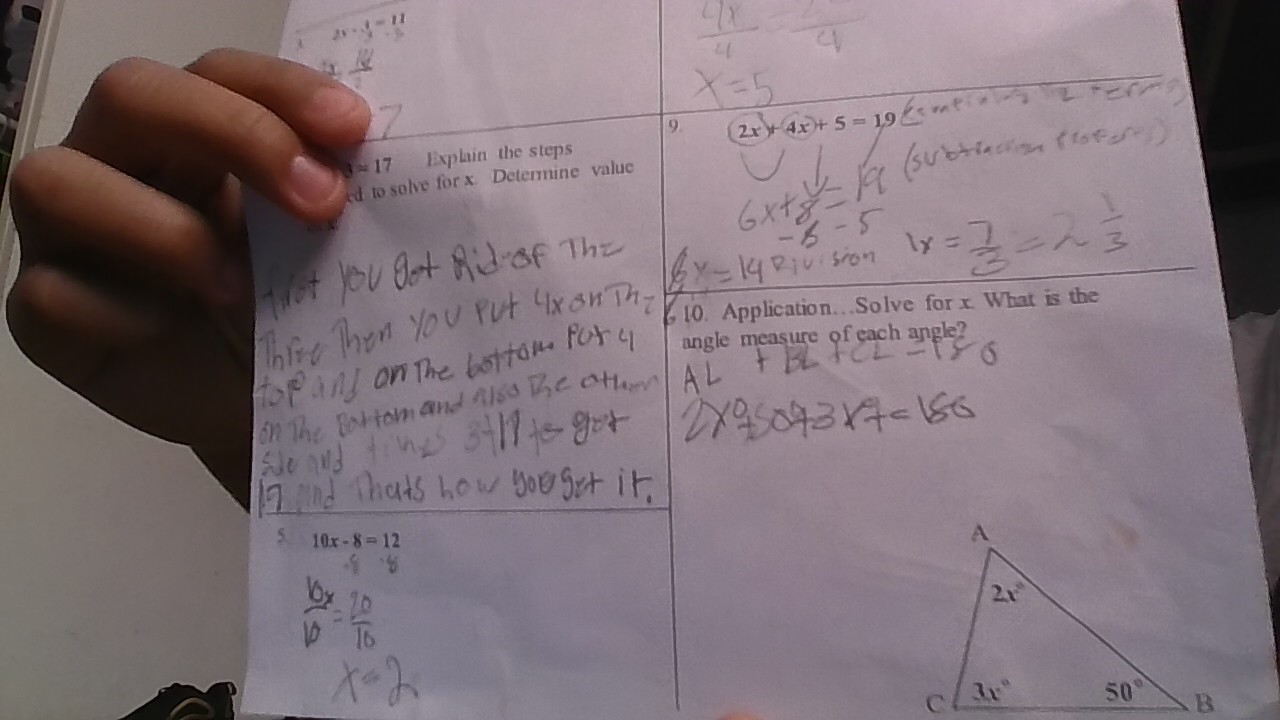 = 11
7
= 17 Explain the steps
ed to solve for x. Determine value
first you got Rid of The
Three Then you put 4x on The
top and on The bottom Put 4
on The Bottom and also The other
side and 3 + 17 to get
17 and Thats how you got it.
5. 10x - 8 = 12
-8 -8
10x = 20
10 10
x = 2
4x
4 4
x = 5
9. 2x + 4x + 5 = 19
6x + = 19
-5 - 5
6x = 14 Division
1x = 7/3 = 2 1/3
6
10. Application...Solve for x. What is the
angle measure of each angle?
AL + BL + CL = 180
2x + 50 + 3x = 180
A
2x°
C 3x° 50° B